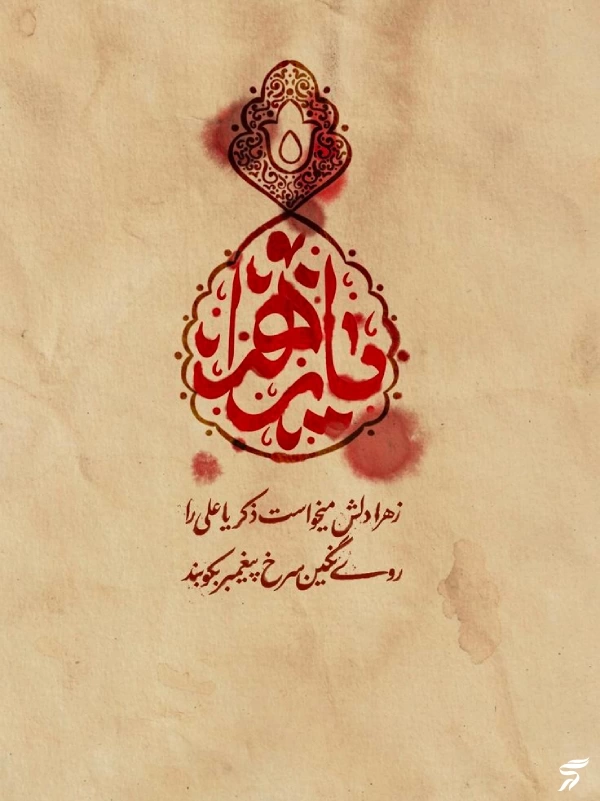 یا زهرا
زهرا دلش میخواست ذکر یا علی را
روے نگین سرخ پیغمبر بکوبند